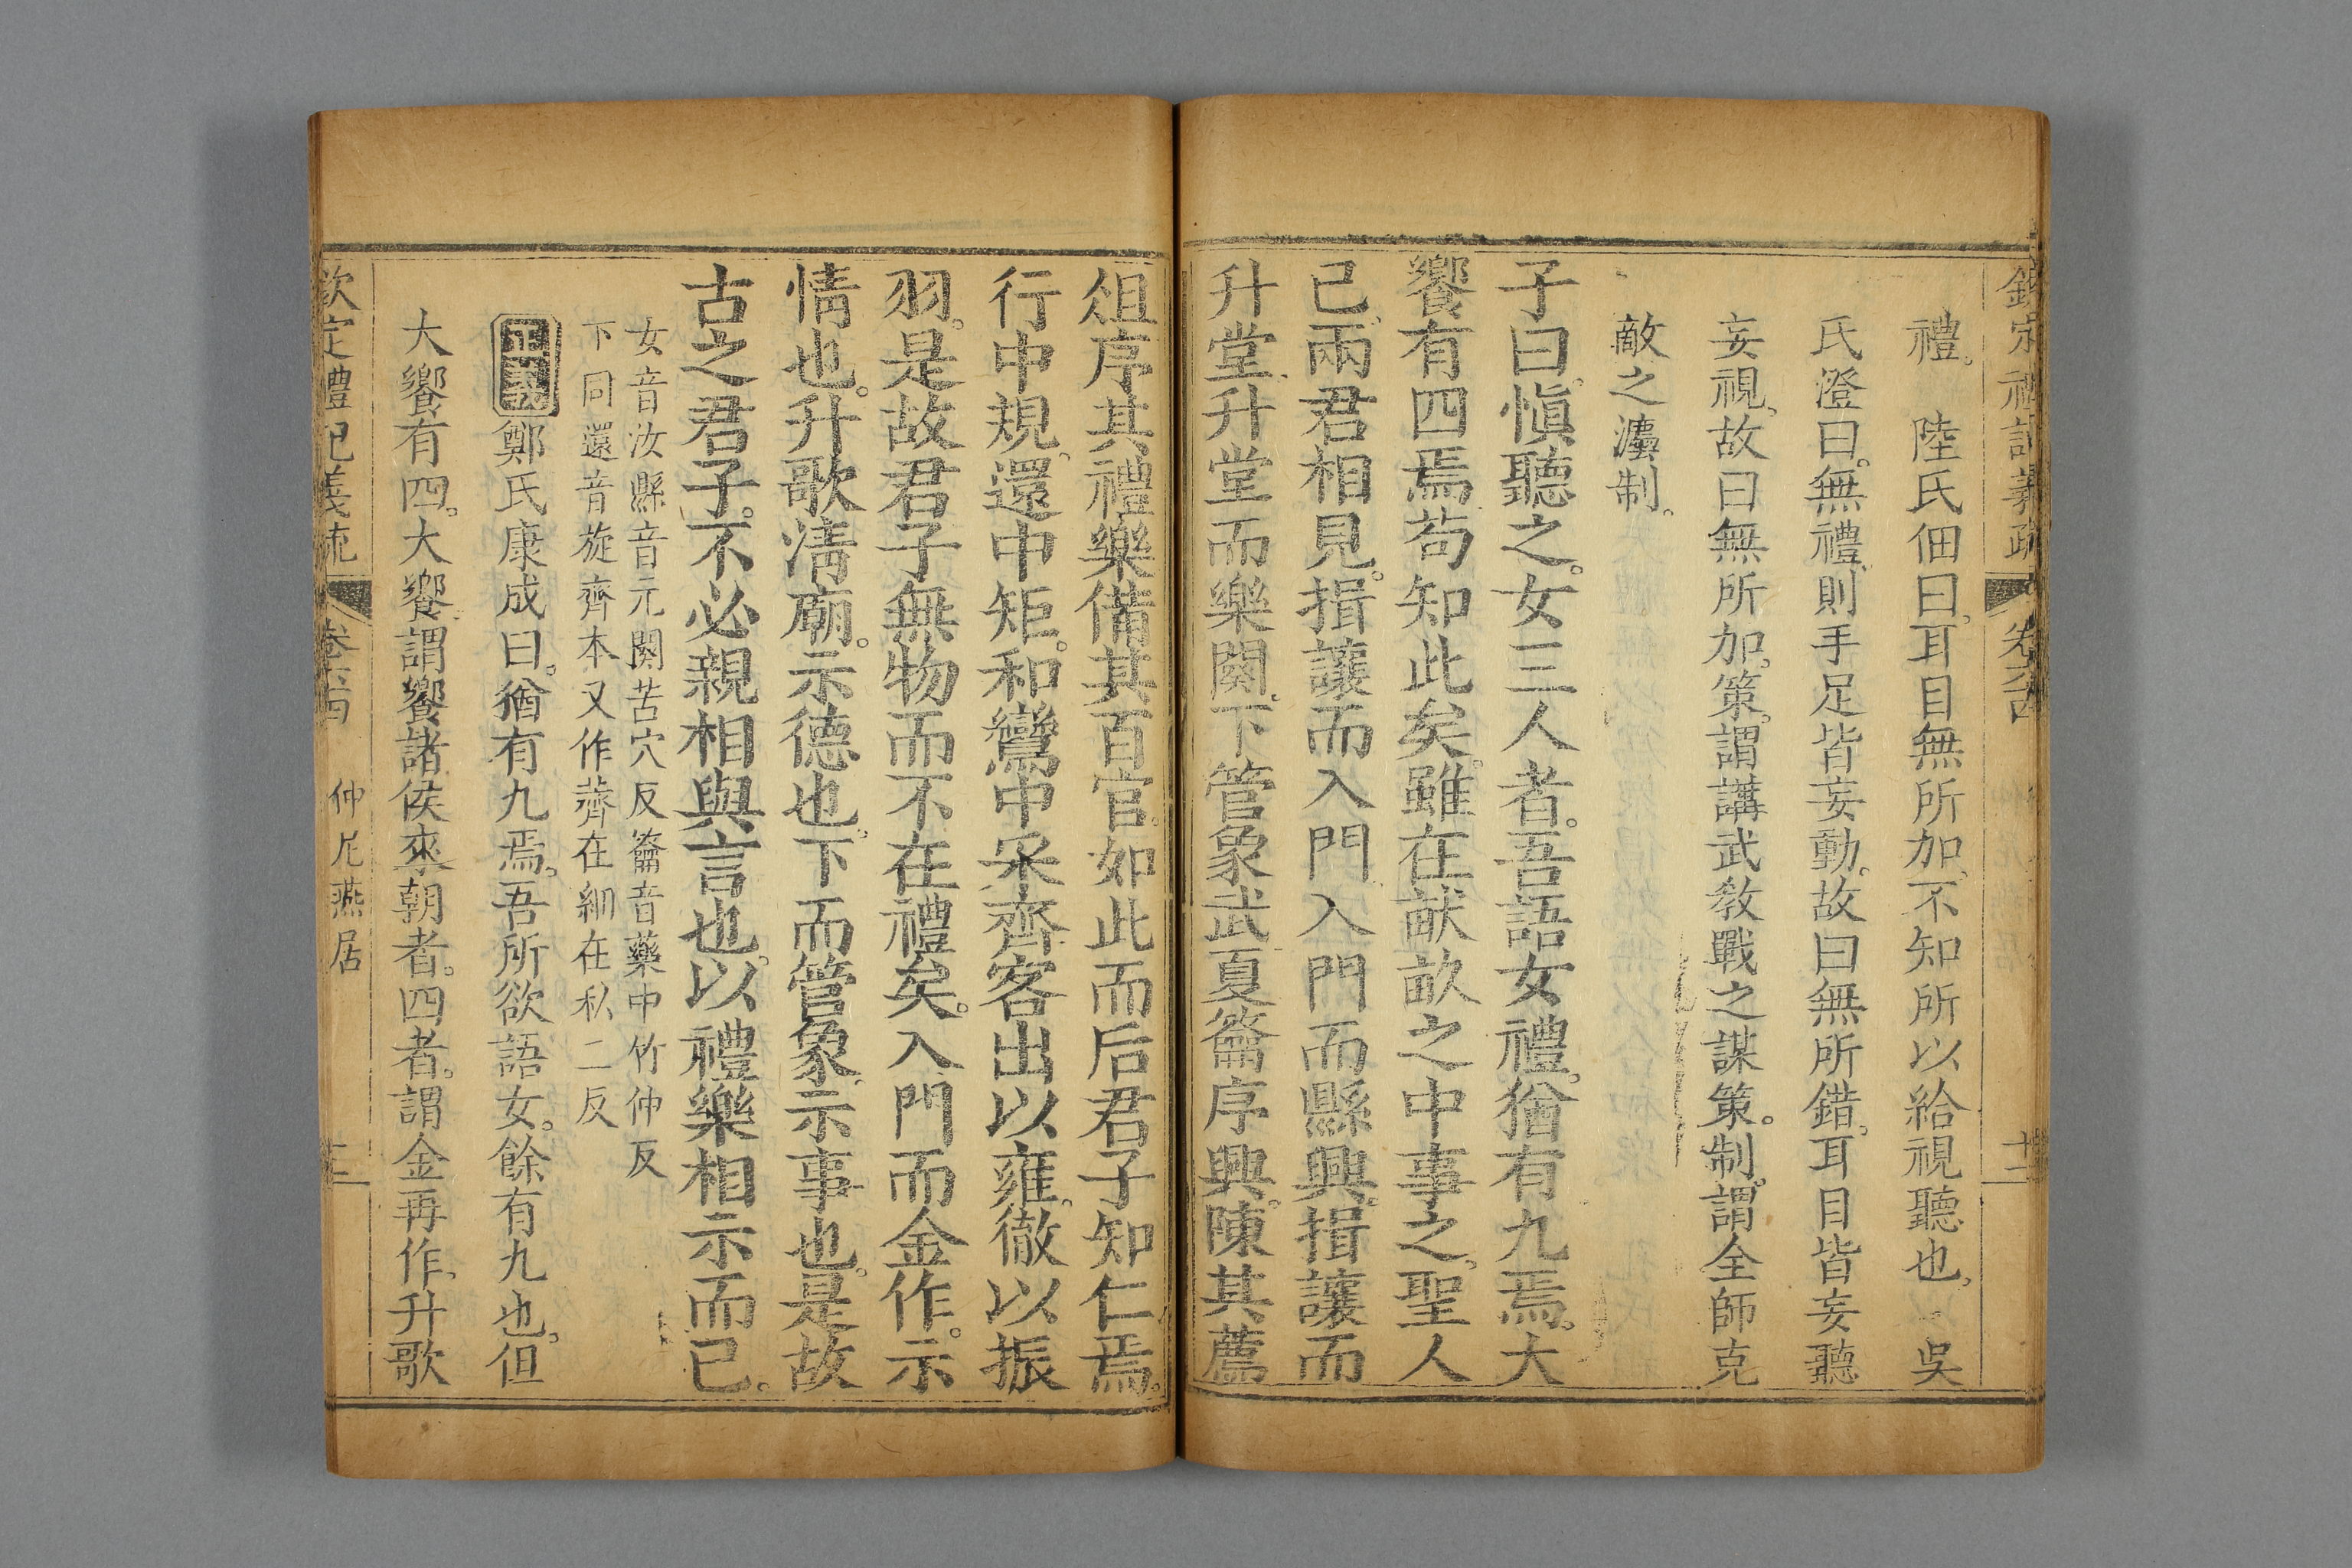 欽定禮記義疏 卷六十四 十二
禮。 陸氏佃曰。耳目無所加、不知所以給視聽也。 吳
氏澄曰。無禮、則手足皆妄動。故曰無所錯。耳目皆妄聽
妄視。故曰無所加。策。謂講武教戰之謀策。制。謂全師克
敵之灋制。
子曰。愼聽之。女三人者。吾語女禮。猶有九焉。大
饗有四焉。苟知此矣。雖在畎畝之中事之。聖人
已。兩君相見。揖讓而入門。入門而縣興。揖讓而
升堂。升堂而樂闋。下管象武夏籥序興。陳其薦
俎。序其禮樂。備其百官。如此而后君子知仁焉。
行中規。還中矩。和鸞中采齊。客出以雍。徹以振
羽。是故君子無物而不在禮矣。入門而金作。示
情也。升歌淸廟。示德也。下而管象。示事也。是故
古之君子。不必親相與言也。以禮樂相示而已。
女音汝縣音元闋苦穴反籥音藥中竹仲反
下同還音旋齊本又作薺在細在私二反
正義鄭氏康成曰。猶有九焉。吾所欲語女。餘有九也。但
大饗有四。大饗。謂饗諸侯來朝者。四者。謂金再作、升歌
欽定禮記義疏 卷六十四 仲尼燕居 十三